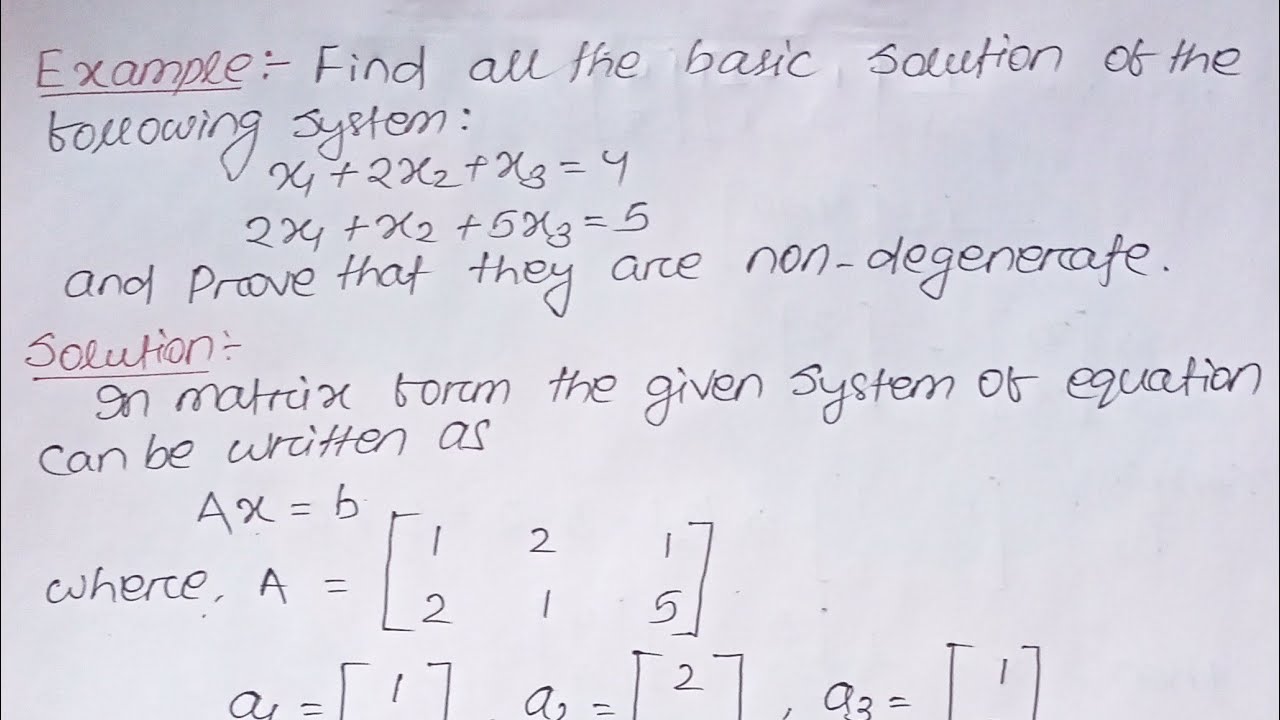 Example:- Find all the basic solution of the
following system:
x₁ + 2x₂ + x₃ = 4
2x₁ + x₂ + 5x₃ = 5
and Prove that they are non-degenerate.
Solution:-
In matrix form the given system of equation
can be written as
Ax = b
where, A = [1 2 1
2 1 5]
a₁ = [1], a₂ = [2], a₃ = [1]